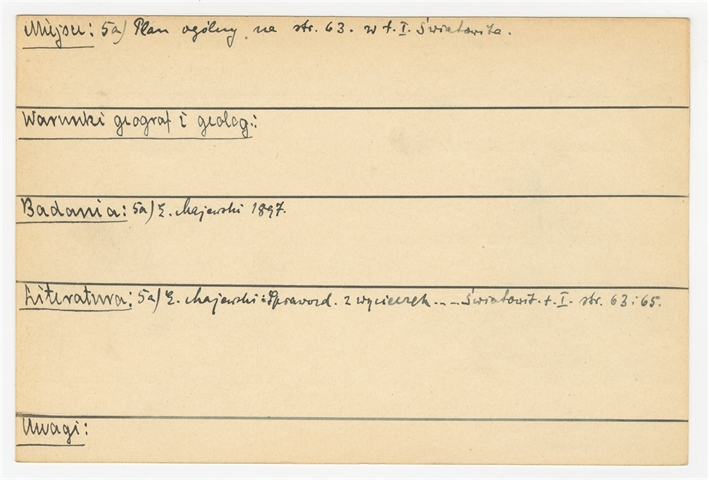 Miejsce: 5a) Plan ogólny na str. 63. w t. I. Światowita.
Warunki geograf i geolog:
Badania: 5a) E. Majewski 1897.
Literatura: 5a) E. Majewski: Sprawozd. z wycieczek... Światowit. t. I. str. 63 i 65.
Uwagi: